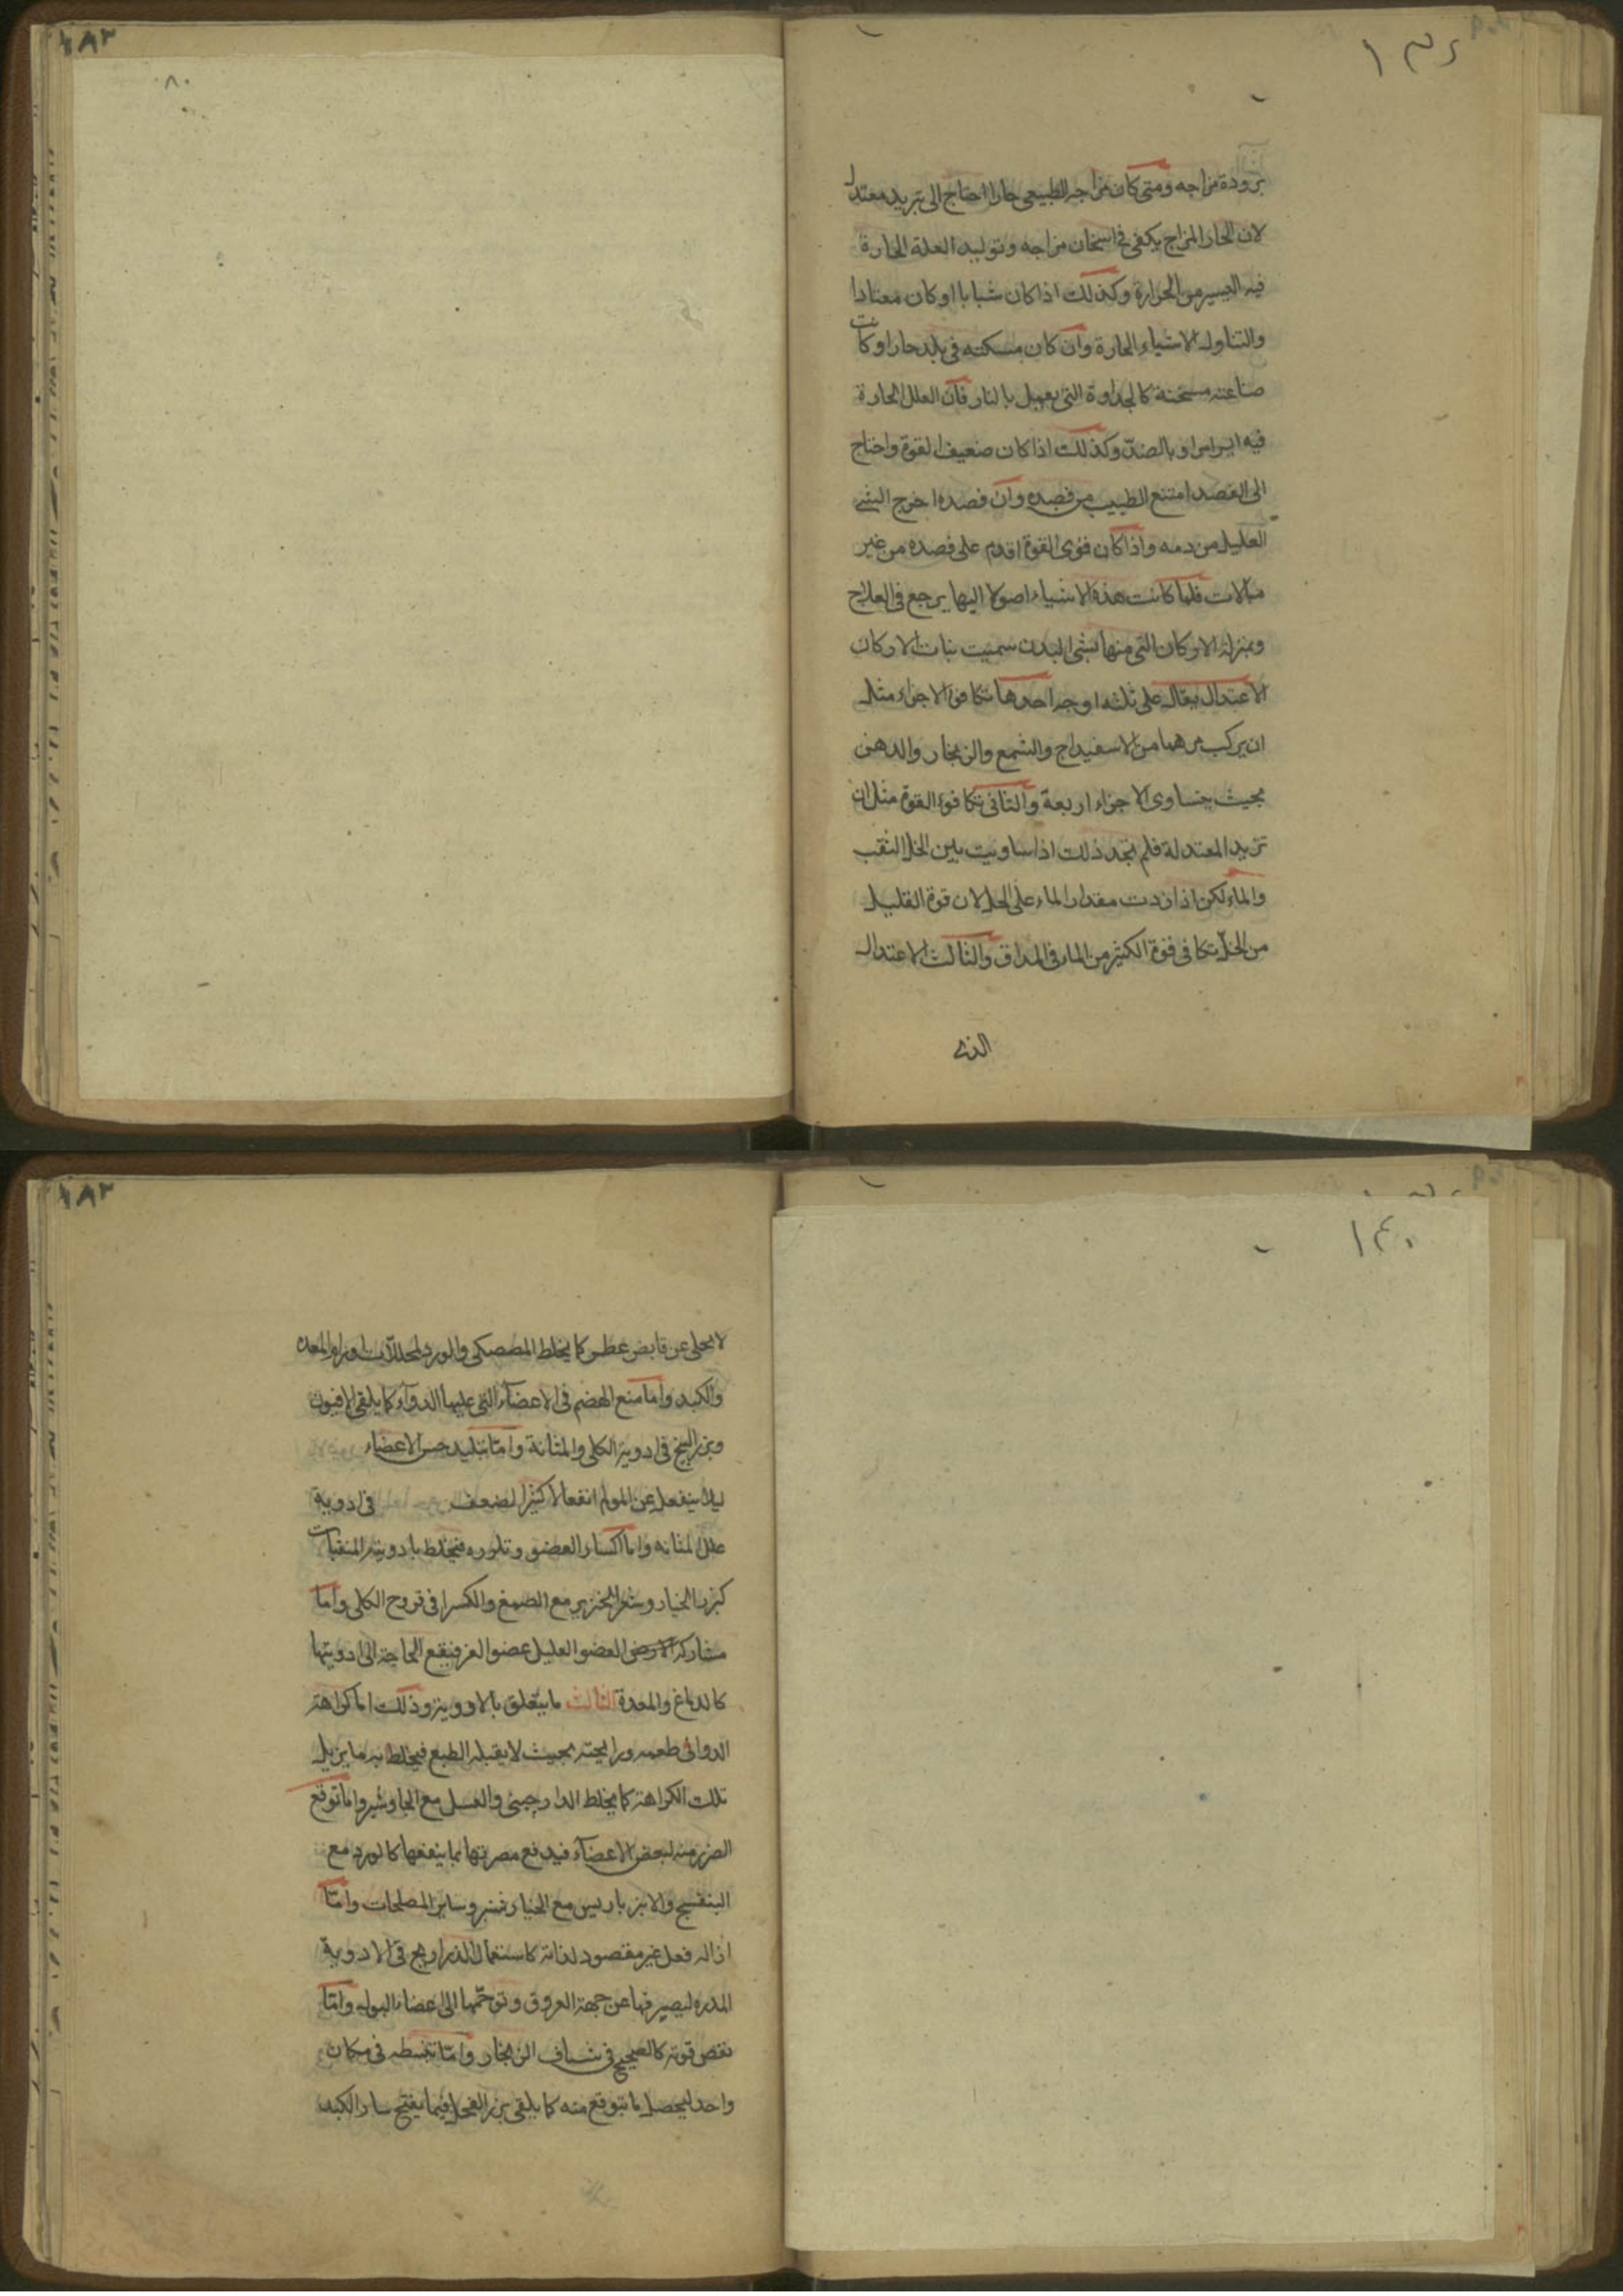 ١٨٢
٨٠
برودة مزاجه ومتى كان مزاجه الطبيعى حارا احتاج الى تبريد معتدل
لان الحار المزاج يكفى فى اسخان مزاجه وتوليد العلة الحارة
فيه اليسير من الحرارة وكذلك اذا كان شبابا او كان معتادا
والتناول الاشياء الحارة وان كان مسكنه فى بلد حار او كانت
صناعته مسخنة كالحدادة التى يعمل بالنار فان العلل الحارة
فيه او بالضد وكذلك اذا كان ضعيف القوة واحتاج
الى الفصد امتنع الطبيب من فصده وان فصده اخرج الشى
القليل من دمه واذا كان قوى القوة اقدم على فصده من غير
مبالات فلما كانت هذه الاشياء اصولا اليها يرجع فى العلاج
وبمنزلة الاركان التى منها البدن سميت بنات الاركان
الاعتدال يقال على ثلثه اوجه احدها تكافؤ الاجزاء مثل
ان يركب مرهما من الاسفيداج والشمع والزنجار والدهن
بحيث يتساوى الاجزاء اربعة والثانى تكافوء القوة مثل ان
تريد المعتدلة فلم تجد ذلك اذا ساويت بين الخل الثقيف
والماء لكن اذا زدت مقدار الماء على الخل لان قوة القليل
من الخل تكافى قوة الكثير من الماء فى المذاق والثالث الاعتدال
الذى
١٨٢
١٤٠
لا يخلى عن قابض عطر كما يخلط المصطكى والورد لمحللات اورام المعده
والكبد واما منع الهضم فى الاعضآء التى عليها الدوآء كما يلقى الافيون
وبزر البنج فى ادوية الكلى والمثانة وامّا تبليد حس الاعضاء
ليلا ينفعل عن المولم انفعالا كثيرا لضعف فى ادوية
علل المثانه واما العضو فيخلط بادويته
كبزر الخيار مع الصمغ والكسرا فى قروح الكلى واما
مشاركة العضو العليل عضوا فيقع الحاجة الى ادويتها
كالدماغ والمعدة الثالث ما يتعلق بالادوية وذلك اما كراهة
الدوا فى طعمه ورايحته بحيث لا يقبله الطبع فيخلط به ما يزيل
تلك الكراهة كما يخلط الدارچينى والعسل مع الجاوشير واما توقع
الضرر منه لبعض الاعضآء فيدفع مضرتها بما ينفعها كالورد مع
البنفسج والانبرباريس مع الخيار شنبر وساير المصلحات وامّا
ازاله فعل غير مقصود لذاته كاستعمال الذراريح فى الادوية
المدره ليصرفها عن جهة العروق وتوجّهها الى اعضاء البول وامّا
نقص قوته فى شياف الزنجار وامّا فى مكان
واحد ليحصل ما يتوقع منه كما يلقى بزر الفجل فيما يفتح الكبد